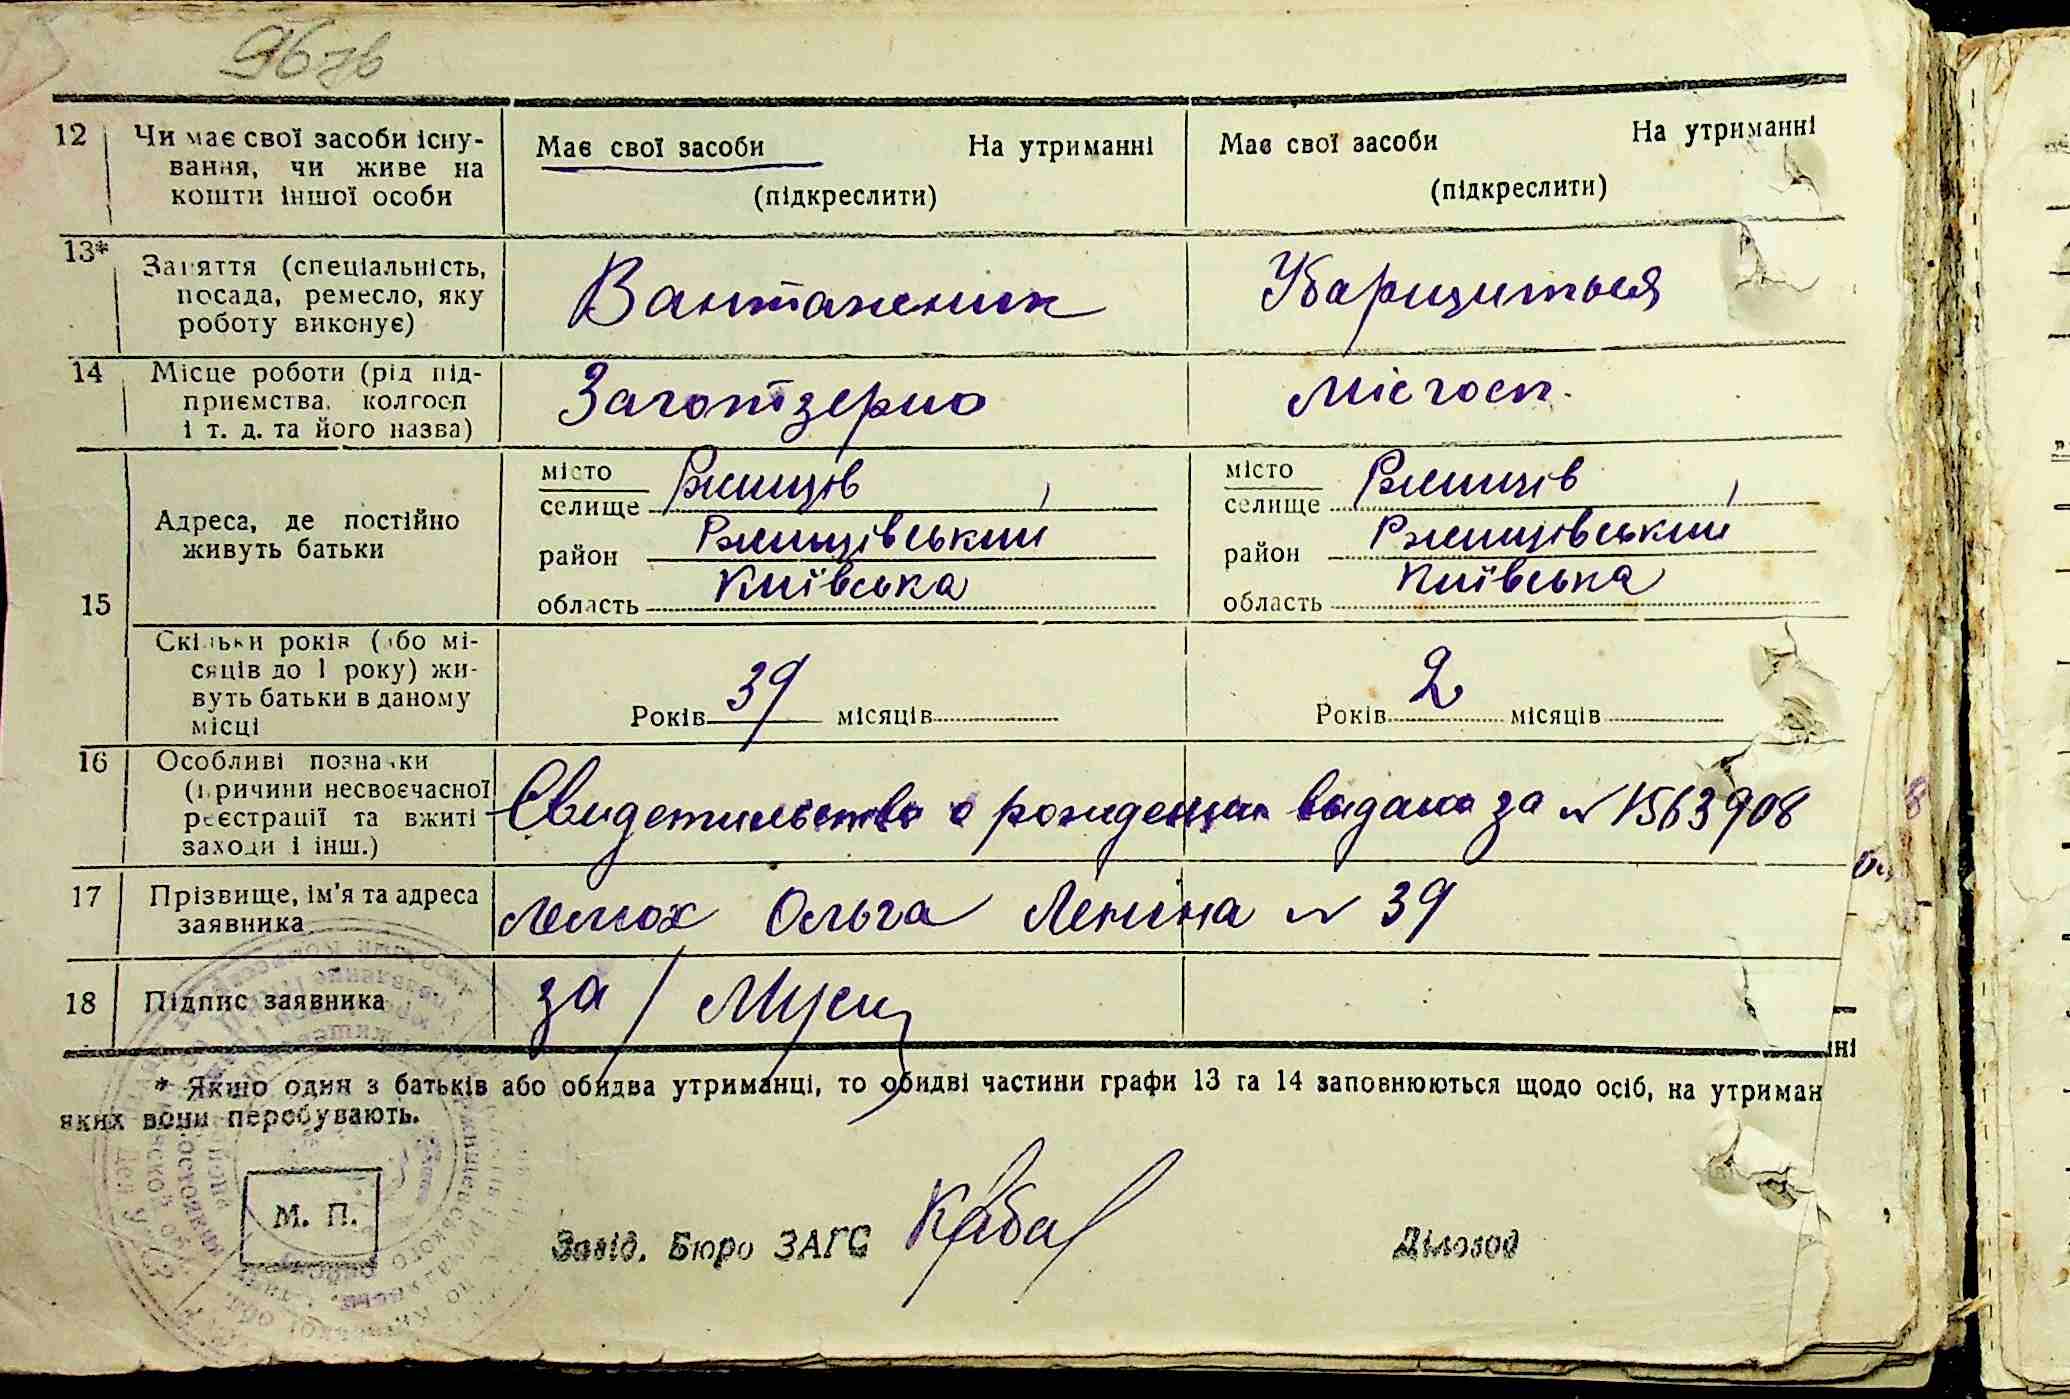 967в
12 Чи має свої засоби існу- Має свої засоби На утриманні Має свої засоби На утриманні
вання, чи живе на (підкреслити) (підкреслити)
кошти іншої особи
13* Заняття (спеціальність, Вантажник Убарщиться
посада, ремесло, яку
роботу виконує)
14 Місце роботи (рід під- Заготзерно Місгосп.
приємства, колгосп
і т. д. та його назва)
15 Адреса, де постійно живуть батьки
місто селище Ржищів місто селище Ржищів
район Ржищівський район Ржищівський
область Київська область Київська
Скільки років (або мі-
сяців до 1 року) жи-
вуть батьки в даному
місці
Років 39 місяців Років 2 місяців
16 Особливі позначки
(причини несвоєчасної
реєстрації та вжиті
заходи і інш.)
Свидетельство о рождении выдана за № 1563908
17 Прізвище, ім'я та адреса
заявника
Лемох Ольга Леніна № 39
18 Підпис заявника за /
* Якщо один з батьків або обидва утриманці, то обидві частини графи 13 та 14 заповнюються щодо осіб, на утриман
яких вони перебувають.
М. П.
Завід. Бюро ЗАГС Діловод